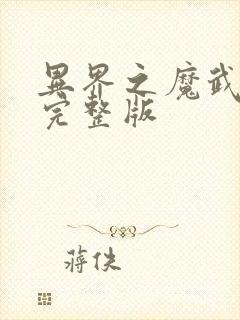 異界之魔武
完整版
蔣佚